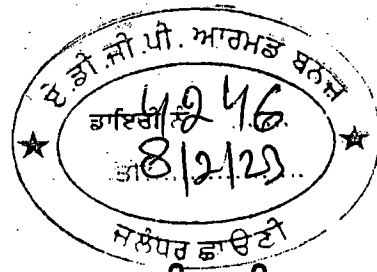 ਏ.ਡੀ.ਜੀ.ਪੀ. ਆਰਮਡ ਬਨਜ਼
ਡਾਇਰੀ ਨੰ 4246
ਮਿ 8/2/23
ਜਲੰਧਰ ਛਾਉਣੀ